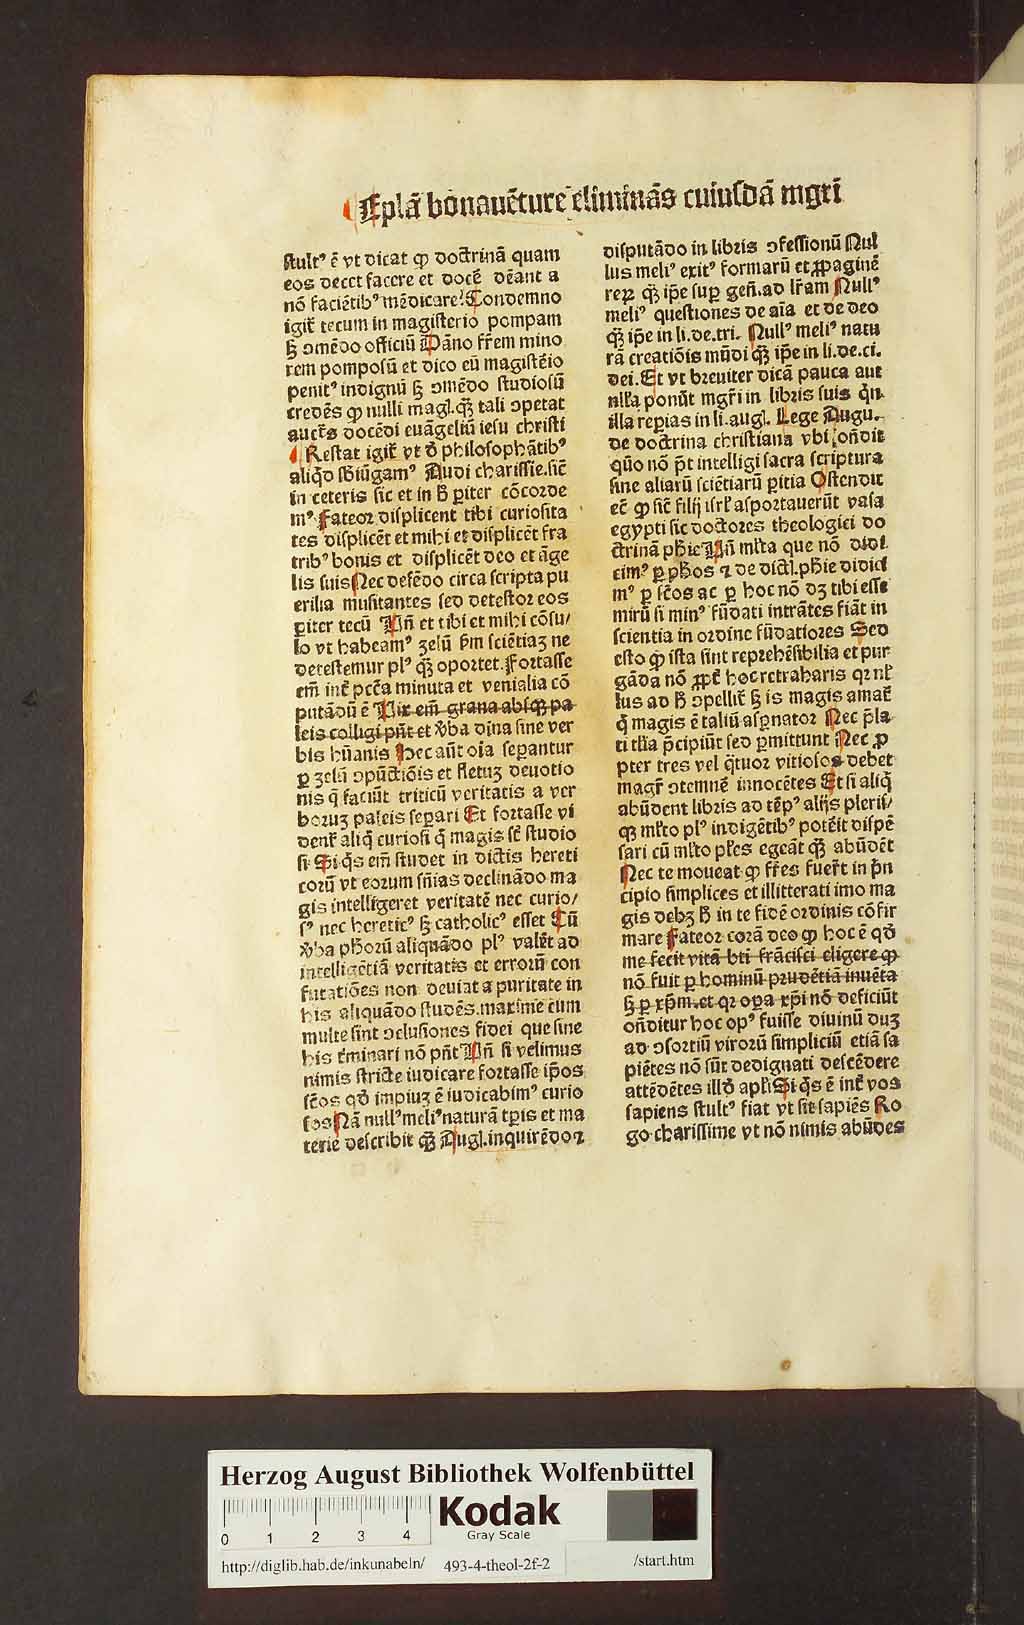 Eplā bonauēture eliminās cuiusdā mgrī
stultꝰ ē vt dicat ꝙ doctrinā quam
eos decet facere et docē dēant a
nō faciētibꝰ mēdicare! Condemno
igit̄ tecum in magisterio pompam
ꝫ ɔmēdo officiū Dāno fr̄em mino
rem pomposū et dico eū magistēio
penitꝰ indignū ꝫ ɔmēdo studiosū
credēs ꝙ nulli magl.q̄ꝫ tali ɔpetat
auct̄s docēdi euāgeliū iesu christi
Restat igit̄ vt ð philosophātibꝰ
aliq̄d sb̄iūgamꝰ Audi charissie.sic̄
in ceteris sic et in h̄ ꝑiter cōcorde
mꝰ. Fateor displicent tibi curiosita
tes displicēt et mihi et displicēt fra
tribꝰ bonis et displicēt deo et āge
lis suis Nec defēdo circa scripta pu
erilia musitantes sed detestor eos
ꝑiter tecū Uñ et tibi et mihi cōsu/
lo vt habeamꝰ zelū ẜm sciētiaꝫ ne
detestemur plꝰ q̄ꝫ oportet. Fortasse
em̄ int̄ pcc̄a minuta et venialia cō
putādū ē Uix em̄ grana absqꝫ pa
leis colligi pn̄t et v̄ba dīna sine ver
bis hūanis Hec aūt oīa seꝑantur
ꝑ zelū ɔpūctiōis et fletuꝫ deuotio
nis q̄ faciūt triticū veritatis a ver
boruꝫ paleis seꝑari Et fortasse vi
dent̄ aliq̄ curiosi q̄ magis st̄ studio
si Si q̄s em̄ studet in dictis hereti
corū vt eorum sn̄ias declinādo ma
gis intelligeret veritatē nec curio/
sꝰ nec hereticꝰ ꝫ catholicꝰ esset Cū
v̄ba ph̄orū aliquādo plꝰ valēt ad
intelligētiā veritatis et errorū con
futatiōes non deuiat a puritate in
his aliquādo studēs.maxime cum
multe sint ɔclusiones fidei que sine
his t̄minari nō pn̄t Uñ si velimus
nimis stricte iudicare fortasse ip̄os
sc̄os qð impiuꝫ ē iudicabimꝰ curio
sos Nā nullꝰ meliꝰ naturā tp̄is et ma
terie describit q̄ꝫ Augl.inquirēdo ⁊
disputādo in libris ɔfessionū Nul
lus meliꝰ exitꝰ formarū et ꝓpaginē
reꝝ q̄ꝫ ip̄e suꝑ geñ.ad lr̄am Nullꝰ
meliꝰ questiones de aīa et de deo
q̄ꝫ ip̄e in li.de.tri. Nullꝰ meliꝰ natu
rā creatiōis mūdi q̄ꝫ ip̄e in li.de.ci.
dei. Et vt breuiter dicā pauca aut
nll̄a ponūt mgr̄i in libris suis q̄n
illa reꝑias in li.augl. Lege Augu.
de doctrina christiana vbi oñdit
quō nō p̄t intelligi sacra scriptura
sine aliarū sciētiarū ꝑitia Ostendit
ec̄ ꝙ sic̄ filij isrl̄ asportauerūt vasa
egypti sic doctores theologici do
ctrinā ph̄ie Uñ ml̄ta que nō didi
cimꝰ ꝑ ph̄os ⁊ de disc̄l.ph̄ie didici
mꝰ ꝑ sc̄os ac ꝑ hoc nō dꝫ tibi esse
mirū si minꝰ fūdati intrātes fiāt in
scientia in ordine fūdatiores Sed
esto ꝙ ista sint reprehēsibilia et pur
gāda nō ꝓpt̄ hoc retraharis qr nl̄
lus ad h̄ ɔpellit̄ ꝫ is magis amat̄
q̄ magis ē taliū asꝑnator Nec p̄la
ti tl̄ia p̄cipiūt sed ꝑmittunt Nec ꝓ
pter tres vel q̄tuor vitiosos debet
magr̄ ɔtemnē innocētes Et si aliq̄
abūdent libris ad tēpꝰ alijs pleris/
qꝫ ml̄to plꝰ indigētibꝰ potēit dispē
sari cū ml̄to pl̄es egeāt q̄ꝫ abūdēt
Nec te moueat ꝙ fr̄es fuer̄t in p̄n
cipio simplices et illitterati imo ma
gis debꝫ h̄ in te fidē ordinis cōfir
mare Fateor corā deo ꝙ hoc ē qð
me fecit vitā bt̄i frācisci eligere ꝙ
nō fuit ꝑ hominū prudētiā inuēta
ꝫ ꝑ xp̄m.et qr oꝑa xp̄i nō deficiūt
oñditur hoc opꝰ fuisse diuinū duꝫ
ad ɔsortiū virorū simpliciū etiā sa
piētes nō sūt dedignati descēdere
attēdētes illð apl̄i Si q̄s ē int̄ vos
sapiens stultꝰ fiat vt sit sapiēs Ro
go charissime vt nō nimis abūdes
Herzog August Bibliothek Wolfenbüttel
0 1 2 3 4
Kodak
Gray Scale
http://diglib.hab.de/inkunabeln/ 493-4-theol-2f-2 /start.htm